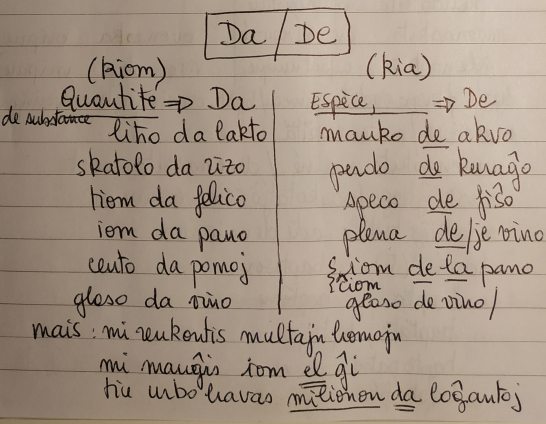 Da / De
(kiom)
Quantité ⇒ Da
de substance
litro da lakto
skatolo da rizo
tiom da feliĉo
iom da pano
cento da pomoj
glaso da vino
(kia)
Espèce, ⇒ De
manko de akvo
perdo de kuraĝo
speco de fiŝo
plena de/je vino
{ iom de la pano
{ ĉiom
glaso de vino/
mais : mi renkontis multajn homojn
mi manĝis iom el ĝi
tiu urbo havas milionon da loĝantoj